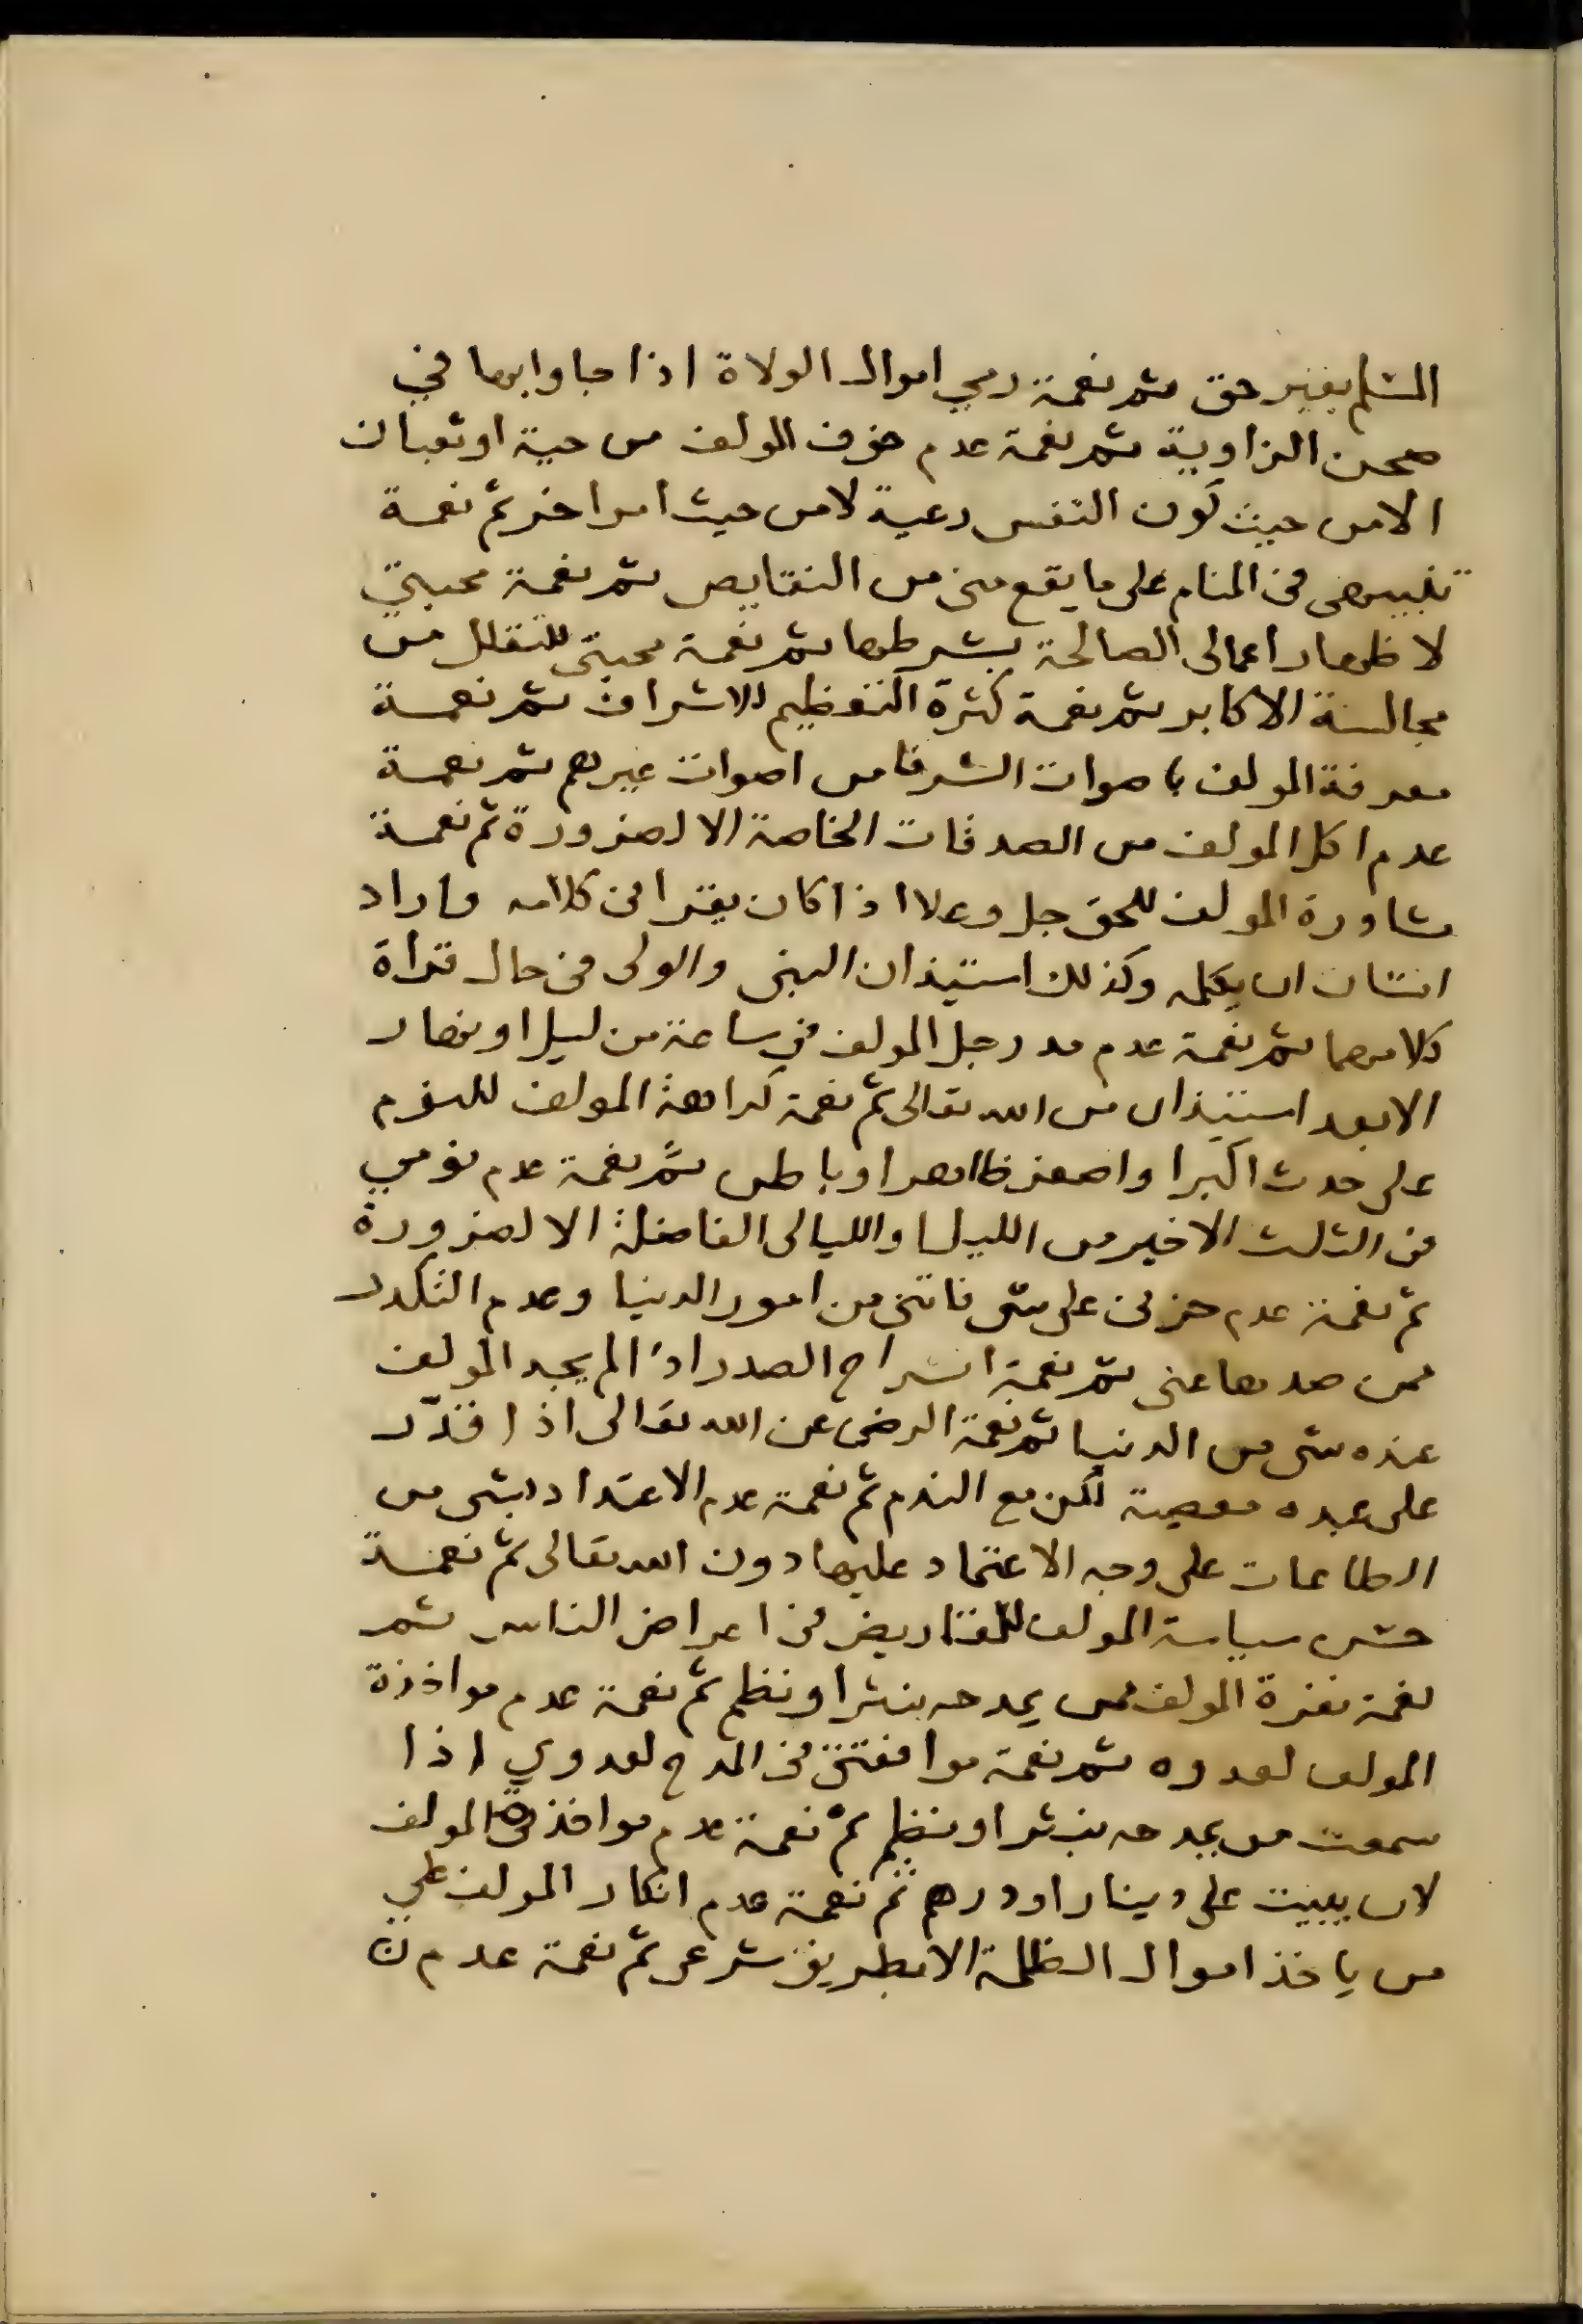 المسلم بغير حق ثم نعمة رمي اموال الولاة اذا جاوا بها في
صحن الزاوية ثم نعمة عدم خوف المولف من حية او ثعبان
الا من حيث كون النفس رعية لا من حيث امر اخر ثم نعمة
تنبيهى فى المنام على ما يقع منى من النقايص ثم نعمة محبتي
لاظهار اعمالى الصالحة بشرطها ثم نعمة محبتى للتقلل من
مجالسة الاكابر ثم نعمة كثرة التعظيم للاشراف ثم نعمة
معرفة المولف باصوات الشرفا من اصوات غيرهم ثم نعمة
عدم اكل المولف من الصدقات الخاصة الا لضرورة ثم نعمة
مشاورة المولف للحق جل وعلا اذا كان يقرا فى كلامه واراد
انسان ان يكلمه وكذلك استيذان النبى والولى فى حال قراة
كلامهما ثم نعمة عدم مد رجل المولف في ساعة من ليل او نهار
الا بعد استيذان من الله تعالى ثم نعمة كراهة المولف للنوم
على حدث اكبر او اصغر ظاهر او باطن ثم نعمة عدم نومي
فى الثلث الاخير من الليل والليالى الفاضلة الا لضرورة
ثم نعمة عدم حزنى على شى فاتنى من امور الدنيا وعدم التكدر
ممن صدها عنى ثم نعمة انشراح الصدر اذا لم يجد المولف
عنده شى من الدنيا ثم نعمة الرضى عن الله تعالى اذا قدّر
على عبده معصية لكن مع الندم ثم نعمة عدم الاعتداد بشى من
الطاعات على وجه الاعتماد عليها دون الله تعالى ثم نعمة
حسن سياسة المولف للمقاريض فى اعراض الناس ثم
نعمة نفرة المولف ممن يمدحه بنثر او نظم ثم نعمة عدم مواخذة
المولف لعدوه ثم نعمة موافقتى فى المدح لعدوي اذا
سمعت من يمدحه بنثر او بنظم ثم نعمة عدم المولف
لان يبيت على دينار او درهم ثم نعمة عدم انكار المولف على
من ياخذ اموال الظلمة الا بطريق شرعى ثم نعمة عدم